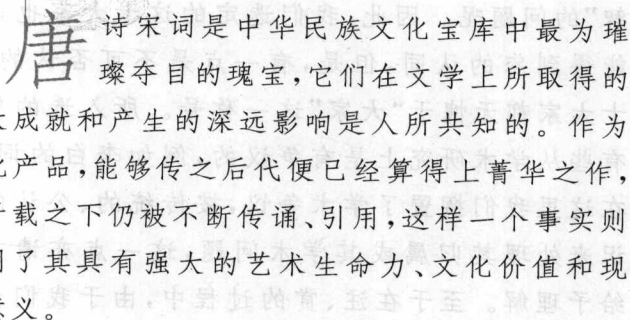 唐诗宋词是中华民族文化宝库中最为璀
璨夺目的瑰宝,它们在文学上所取得的
成就和产生的深远影响是人所共知的。作为
产品,能够传之后代便已经算得上菁华之作,
载之下仍被不断传诵、引用,这样一个事实则
了其具有强大的艺术生命力、文化价值和现
义。